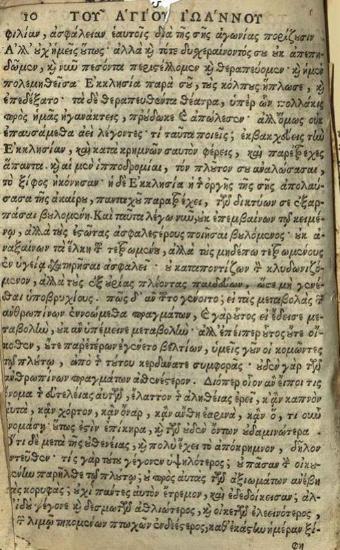 10 ΤΟΥ ΑΓΙΟΥ ΙΩΑΝΝΟΥ
φιλίαν, ἀσφάλειαν ἑαυτοῖς διὰ τῆς σῆς ἀγωνίας πορίζουσιν
Ἀλλ' οὐχ ἡμεῖς οὕτως· ἀλλὰ καὶ τότε δυσχεραίνοντός σου οὐκ ἀπεπη-
δῶμεν, καὶ νῦν πεσόντα περιστέλλομεν καὶ θεραπεύομεν· καὶ ἡ μὲν
πολεμηθεῖσα Ἐκκλησία παρὰ σοῦ, τοὺς κόλπους ἥπλωσε, καὶ
ἐπεδέξατο· τὰ δὲ θεραπευθέντα θέατρα, ὑπὲρ ὧν πολλάκις
πρὸς ἡμᾶς ἠγανάκτεις, προύδωκε καὶ ἀπώλεσεν· ἀλλ' ὅμως οὐκ
ἐπαυσάμεθα ἀεὶ λέγοντες· τί ταῦτα ποιεῖς; ἐκβακχεύεις τὴν
Ἐκκλησίαν, καὶ κατὰ κρημνῶν σαυτὸν φέρεις, καὶ παρέτρεχες
ἅπαντα. καὶ αἱ μὲν ἱπποδρομίαι, τὸν πλοῦτον σου ἀναλώσασαι,
τὸ ξίφος ἠκόνησαν· ἡ δὲ Ἐκκλησία ἡ τῆς ὀργῆς τῆς σῆς ἀπολαύ-
σασα τῆς ἀκαίρου, πανταχοῦ παρατρέχει, τῶν δικτύων σε ἐξαρ-
πάσαι βουλομένη. Καὶ ταῦτα λέγω νῦν, οὐκ ἐπεμβαίνων τῷ κειμέ-
νῳ, ἀλλὰ τοὺς ἑστῶτας ἀσφαλεστέρους ποιῆσαι βουλόμενος· οὐκ ἀ-
ναξαίνων τὰ ἕλκη τῶν τετρωμένων, ἀλλὰ τοῖς μηδέπω τετρωμένοις
ἐν ὑγείᾳ διατηρῆσαι ἀσφαλεῖ· οὐ καταποντίζων τὸν κλυδωνιζό-
μενον, ἀλλὰ τοὺς ἐξ οὐρίας πλέοντας παιδεύων, ὥστε μὴ γενέ-
σθαι ὑποβρυχίους. πῶς δ' ἂν τοῦτο γένοιτο; εἰ τὰς μεταβολὰς τῶν
ἀνθρωπίνων ἐννοώμεθα πραγμάτων, καὶ γὰρ οὗτος εἰ ἔδεισε με-
ταβολὴν, οὐκ ἂν ὑπέμεινε μεταβολήν· ἀλλ' ἐπείπερ οὗτος οὔτε οἴ-
κοθεν, οὔτε παρ' ἑτέρων ἐγένετο βελτίων, ὑμεῖς γοῦν οἱ κομῶντες
τῷ πλούτῳ, ἀπὸ τῆς τούτου κερδάνατε συμφορᾶς· οὐδὲν γὰρ τῶν
ἀνθρωπίνων πραγμάτων ἀσθενέστερον. Διόπερ οἷον ἂν εἴποι τις
ὄνομα τῆς εὐτελείας αὐτῶν, ἔλαττον τῆς ἀληθείας ἐρεῖ, κἂν καπνὸν
αὐτὰ, κἂν χόρτον, κἂν ὄναρ, κἂν ἄνθη ἐαρινὰ, κἂν ὁτιοῦν
νομάσῃ· οὕτως ἐστὶν ἐπίκηρα, καὶ τῶν οὐδὲν ὄντων οὐδαμινώτερα.
Ὅτι δὲ μετὰ τῆς οὐθενείας, καὶ πολὺ ἔχει τὸ ἀπόκρημνον, δῆλον
ἐντεῦθεν· τίς γὰρ τούτου γέγονεν ὑψηλότερος; οὐ πᾶσαν τὴν οἰκου-
μένην παρῆλθε τῷ πλούτῳ; οὐ πρὸς αὐτὰς τῶν ἀξιωμάτων ἀνέβη
τὰς κορυφάς; οὐχὶ πάντες αὐτὸν ἔτρεμον, καὶ ἐδεδοίκεισαν; ἀλλ'
ἰδοὺ γέγονε καὶ δεσμωτῶν ἀθλιώτερος, καὶ οἰκετῶν ἐλεεινότερος,
καὶ τῶν λιμῷ τηκομένων πτωχῶν ἐνδεέστερος, καθ' ἑκάστην ἡμέραν ξί-
φη